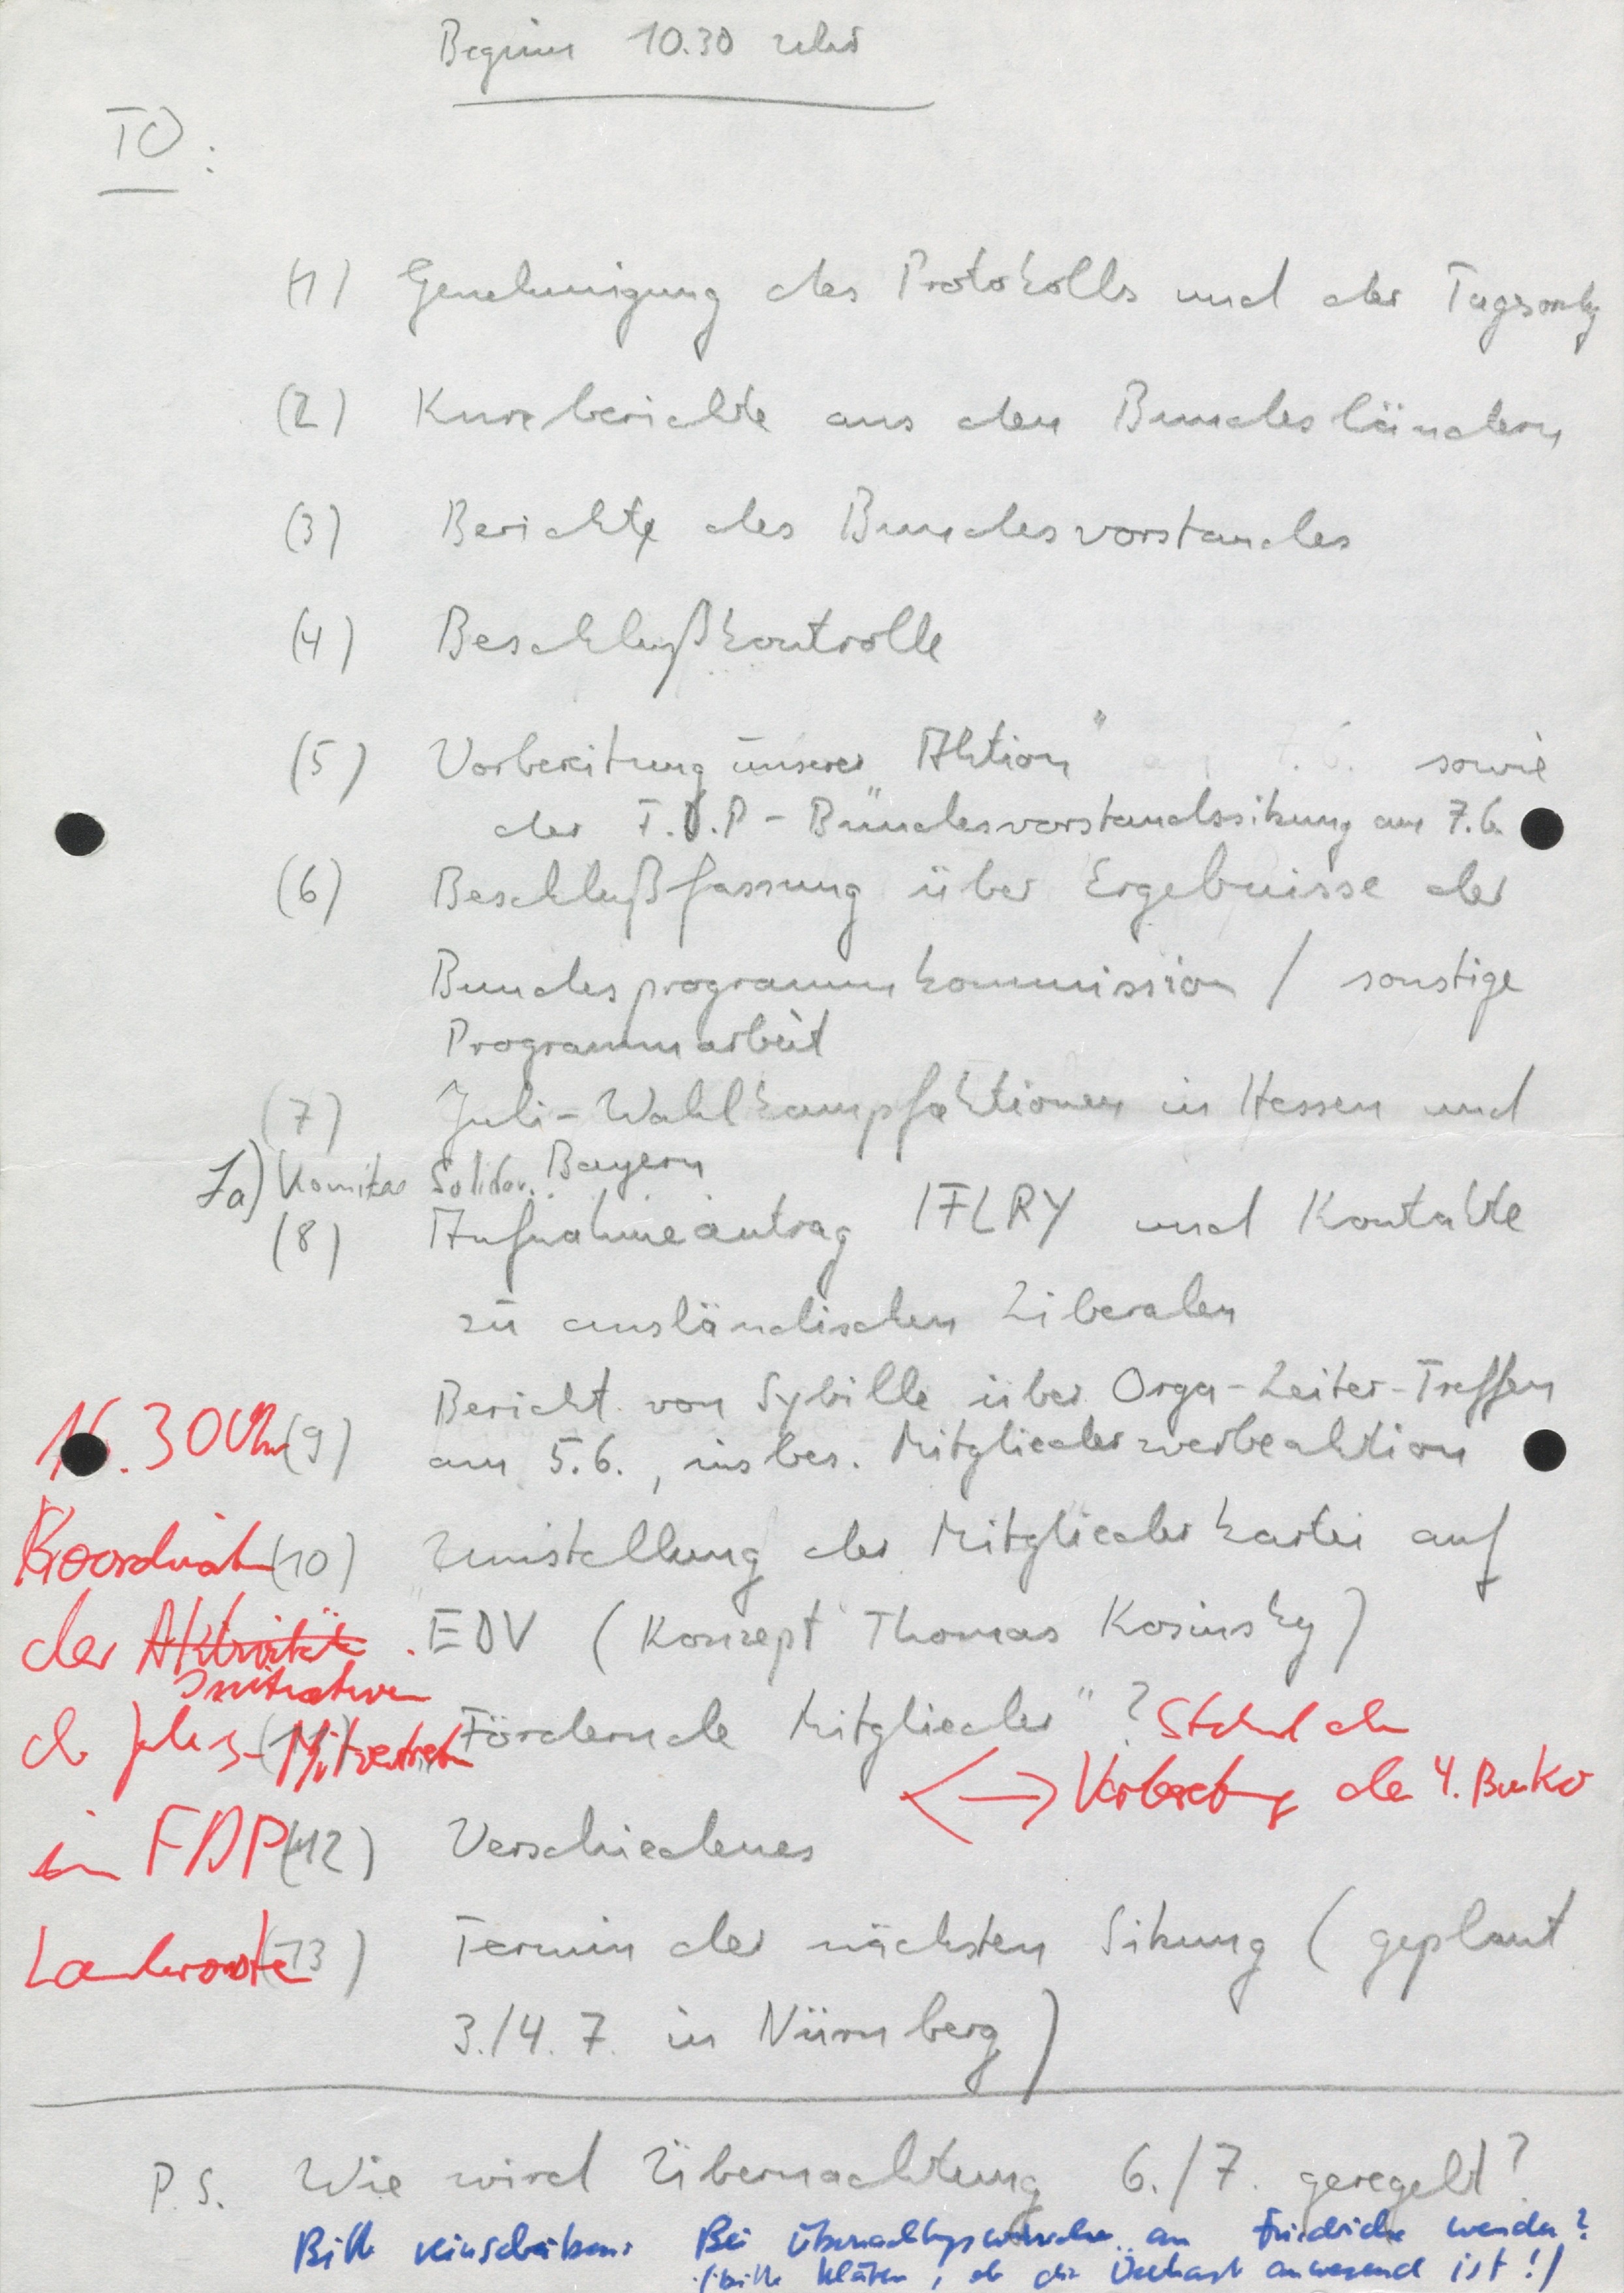 Beginn 10.30 Uhr
TO:
(1) Genehmigung des Protokolls und der Tagesordg
(2) Kurzberichte aus den Bundesländern
(3) Berichte des Bundesvorstandes
(4) Beschlußkontrolle
(5) Vorbereitung unserer "Aktion" sowie
der F.D.P-Bundesvorstandssitzung am 7.6.
(6) Beschlußfassung über Ergebnisse der
Bundesprogrammkommission / sonstige
Programmarbeit
(7) Juli-Wahlkampfaktionen in Hessen und
Bayern
7a) Komitee Solidar.
(8) Aufnahmeantrag IFLRY und Kontakte
zu ausländischen Liberalen
(9) Bericht von Sybille über Orga-Leiter-Treffen
am 5.6., insbes. Mitgliederwerbeaktion
(10) Umstellung der Mitgliederkartei auf
EDV (Konzept Thomas Kosinsky)
(11) "Fördernde Mitglieder"?
Stand der
<–> Vorbereitung der 4. BuKo
(12) Verschiedenes
(13) Termin der nächsten Sitzung (geplant
3./4. 7. in Nürnberg)
16.30 Uhr
Koordination
der Aktivitäten
Initiativen
d. Julis-Mitvertreter
in FDP
Landesvorständen
P.S. Wie wird Übernachtung 6./7. geregelt?
Bitte reinschreiben: Bei Übernachtungswünschen an Friedrich wenden?
(bitte klären, ob die anwesend ist!)